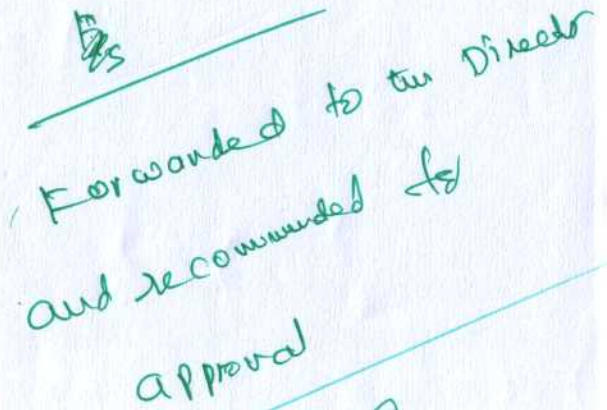 Forwarded to the Director
and recommended for
approval